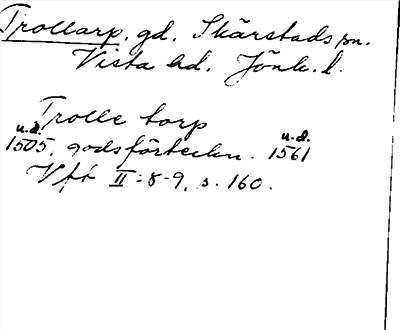 Trollarp. gd. Skärstads sn.
Vista hd. Jönk. l.
Trolle torp
u.d. u.d.
1505, godsförteckn. 1561
Vft II:8-9, s. 160.